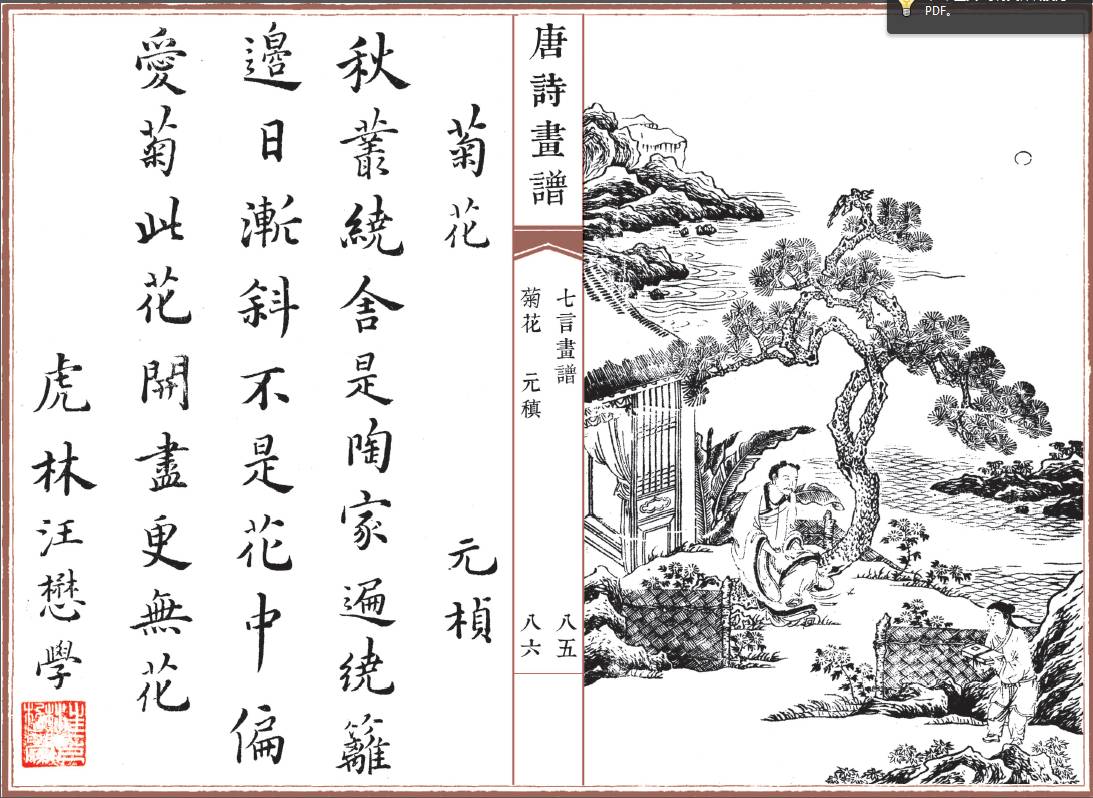 PDF。
唐詩畫譜
七言畫譜
菊花 元稹
八五
八六
菊花 元楨
秋叢繞舍是陶家遍繞籬
邊日漸斜不是花中偏
愛菊此花開盡更無花
虎林汪懋學